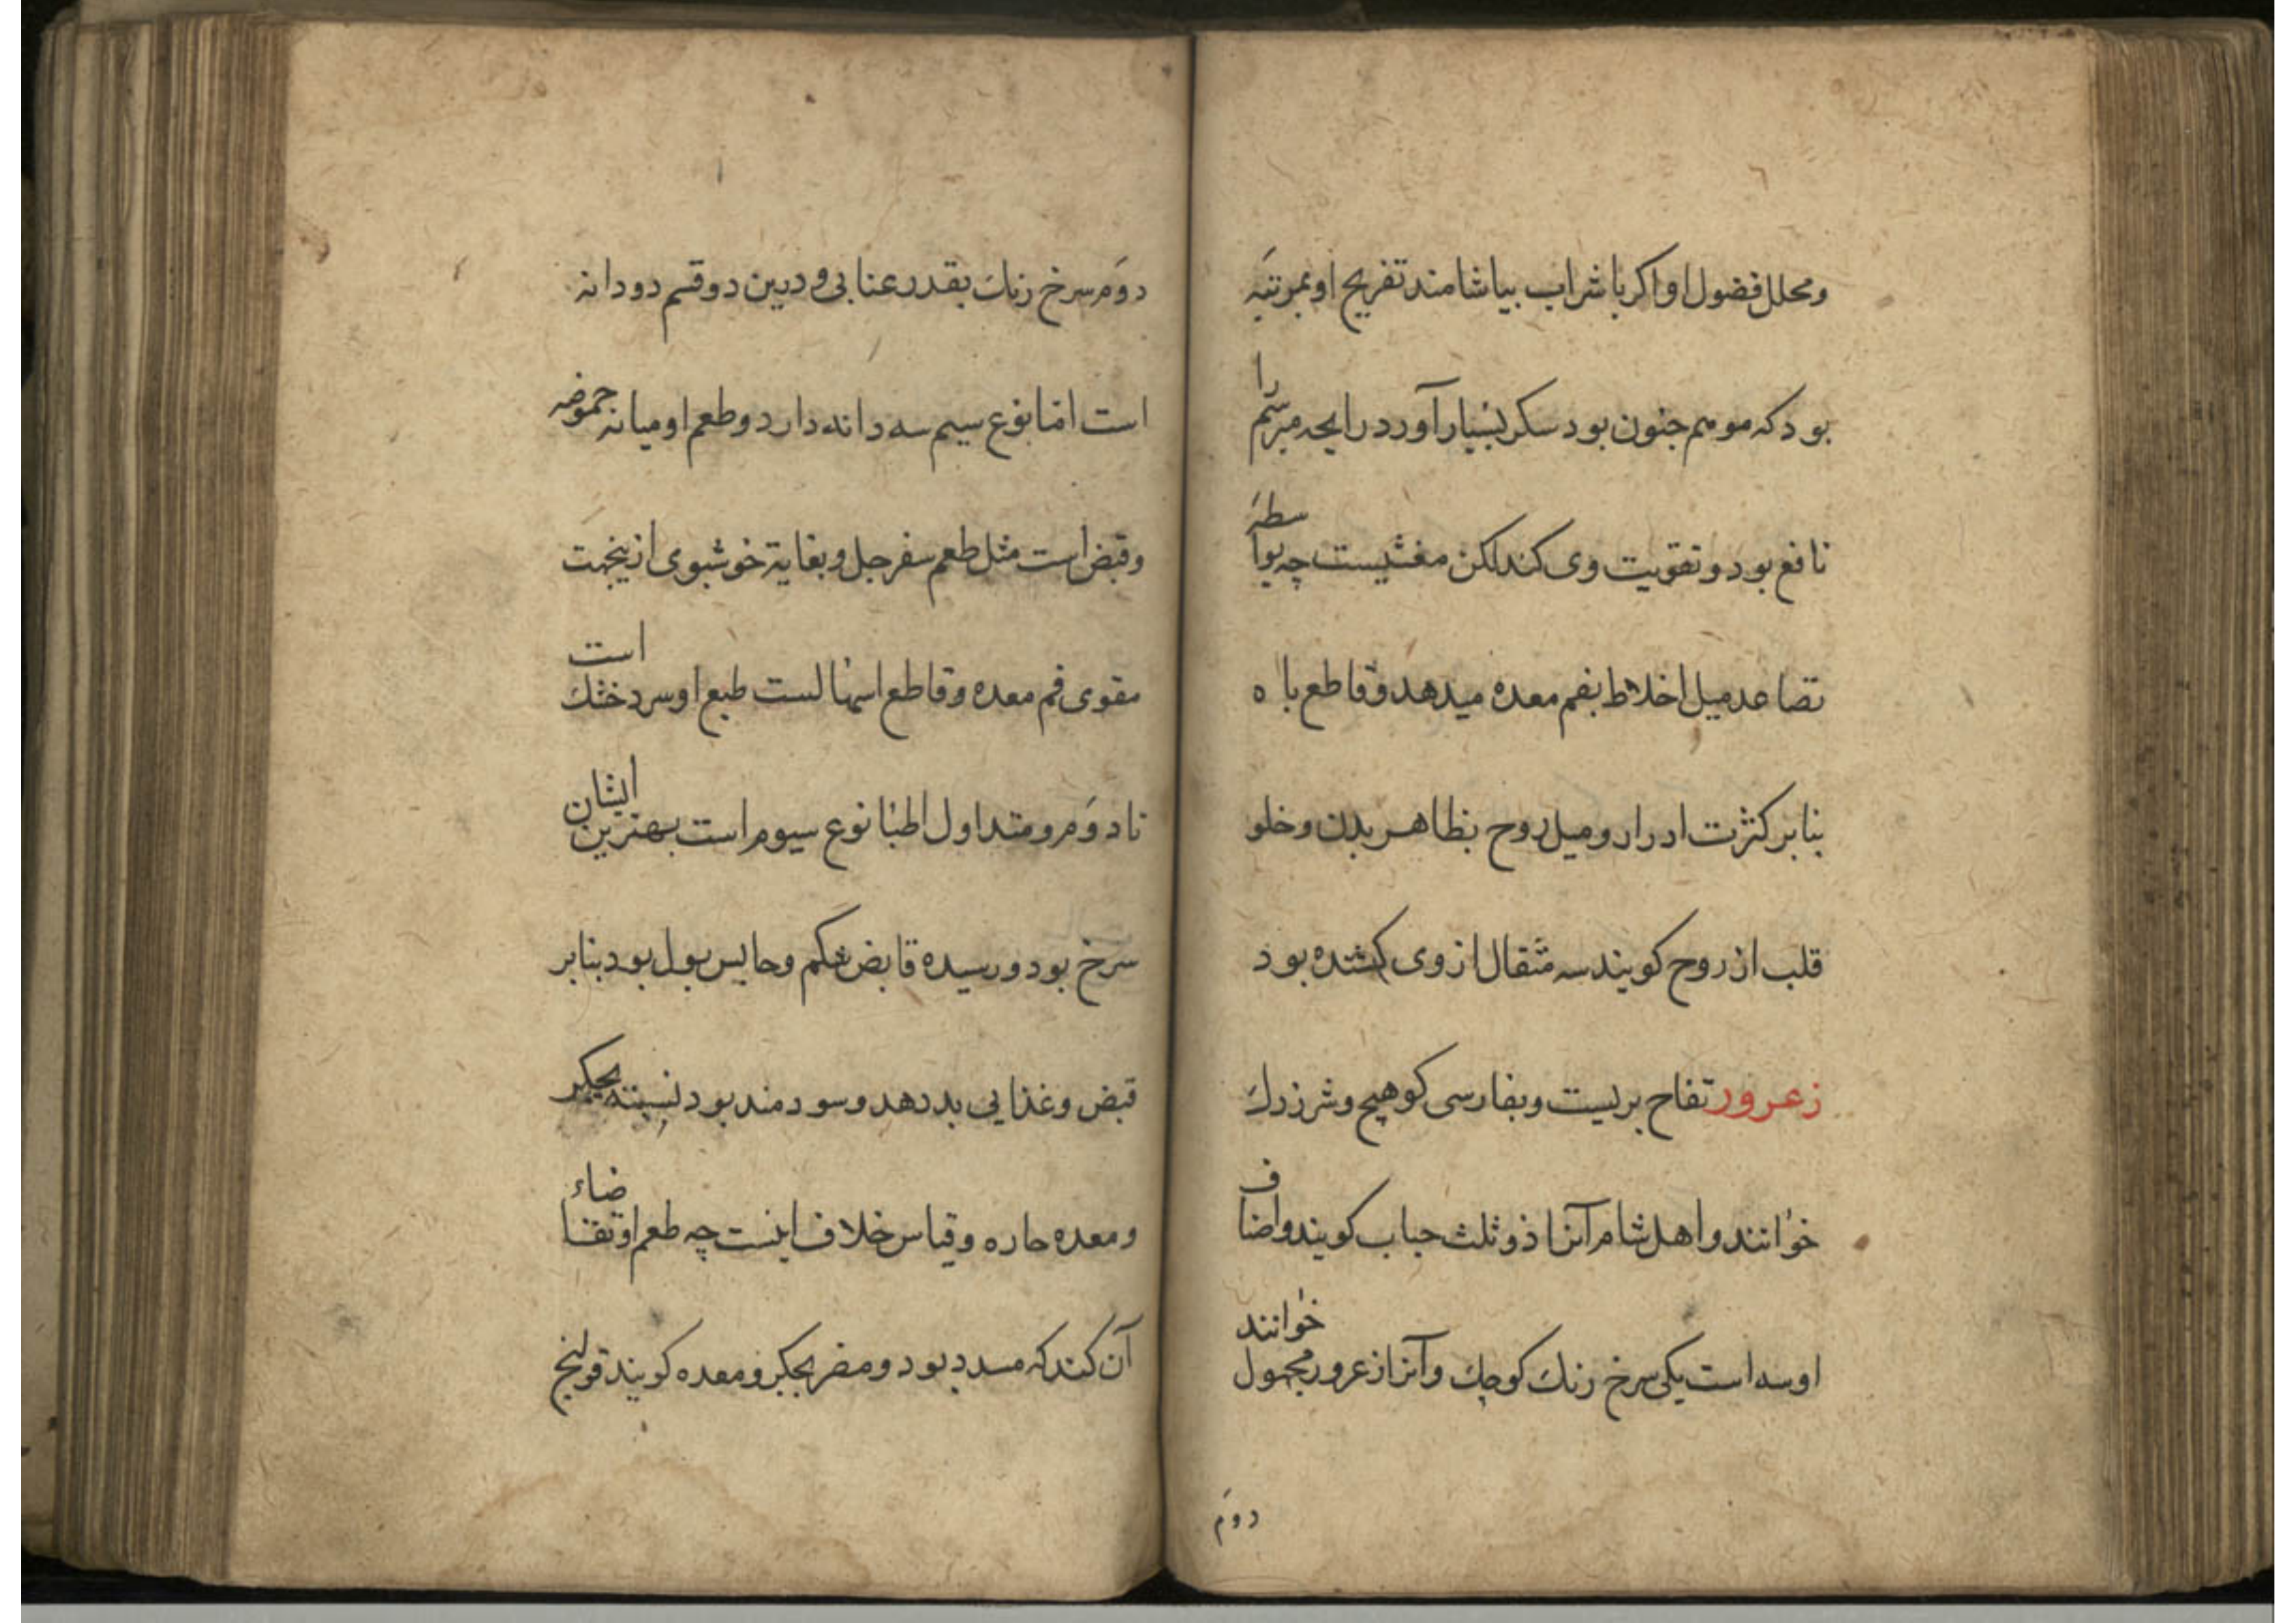 ومحلل فضول او اکر با شراب بیاشامند تفریح او بمرتبۀ
بود که موهم جنون بود سکر بسیار آورد رایحه مبرسم را
نافع بود و تقویت وی کند لکن مغشیست چه بواسطۀ
تصاعد میل اخلاط بفم معده میدهد و قاطع باه
بنابر کثرت ادرار و میل روح بظاهر بدن و خلو
قلب از روح کویند سه مثقال از وی کشنده بود
زعرور تفاح بریست و بفارسی کوهیج و شرزدك
خوانند و اهل شام آنرا ذو ثلث حباب کویند و اصناف
او سه است یکی سرخ رنك کوچك و آنرا زعرور مجهول خوانند
دوم
دوم سرخ رنك بقدر عنابی و درین دو قسم دو دانه
است اما نوع سیم سه دانه دارد و طعم او میانه حموضه
و قبض است مثل طعم سفرجل و بغایة خوشبوی ازینجهت
مقوی فم معده و قاطع اسهالست طبع او سرد خشك است
تا دوم و متداول اطبا نوع سیوم است بهترین ایشان
سرخ بود و رسیده قابض شکم و حابس بول بود بنابر
قبض و غذایی بد دهد و سودمند بود نسبته بجکر
و معده حاره و قیاس خلاف اینست چه طعم او تقاضاء
آن کند که مسدد بود و مضر بجکر و معده کویند قولنج